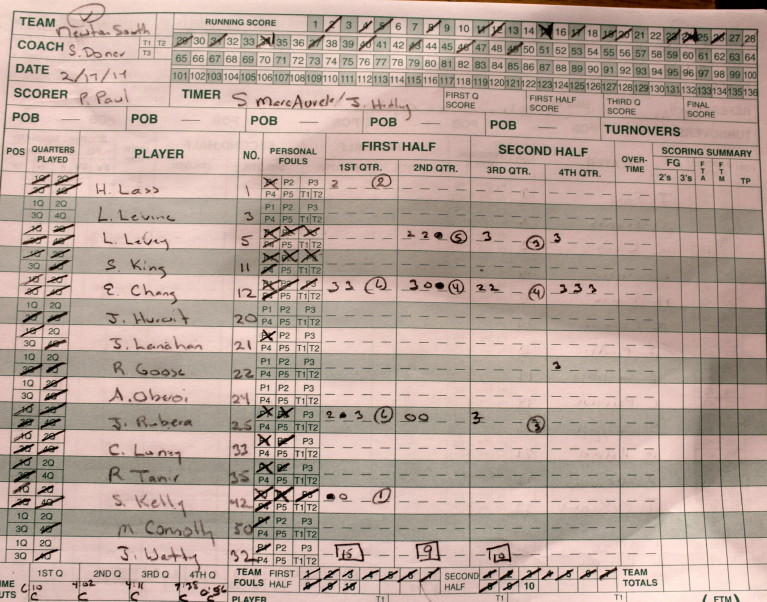 TEAM Newton South RUNNING SCORE 1 2 3 4 5 6 7 8 9 10 11 12 13 14 15 16 17 18 19 20 21 22 23 24 25 26 27 28
COACH S. Doner T1 T2 T3 29 30 31 32 33 34 35 36 37 38 39 40 41 42 43 44 45 46 47 48 49 50 51 52 53 54 55 56 57 58 59 60 61 62 63 64
65 66 67 68 69 70 71 72 73 74 75 76 77 78 79 80 81 82 83 84 85 86 87 88 89 90 91 92 93 94 95 96 97 98 99 100
DATE 2/17/14 101 102 103 104 105 106 107 108 109 110 111 112 113 114 115 116 117 118 119 120 121 122 123 124 125 126 127 128 129 130 131 132 133 134 135 136
SCORER P. Paul TIMER S MarcAurele/J. FIRST Q SCORE FIRST HALF SCORE THIRD Q SCORE FINAL SCORE
POB — POB — POB — POB — POB — TURNOVERS
POS QUARTERS PLAYED PLAYER NO. PERSONAL FOULS FIRST HALF SECOND HALF OVER-TIME SCORING SUMMARY
1ST QTR. 2ND QTR. 3RD QTR. 4TH QTR. FG 2's 3's FTA FTM TP
1Q 2Q 3Q 4Q H. Lass 1 P1 P2 P3 P4 P5 T1 T2 2 (2)
1Q 2Q 3Q 4Q L. Levine 3 P1 P2 P3 P4 P5 T1 T2
1Q 2Q 3Q 4Q L. Levey 5 P1 P2 P3 P4 P5 T1 T2 2 2 0 (5) 3 (3) 3
1Q 2Q 3Q 4Q S. King 11 P1 P2 P3 P4 P5 T1 T2
1Q 2Q 3Q 4Q E. Chang 12 P1 P2 P3 P4 P5 T1 T2 3 3 (6) 3 0 0 (4) 2 2 (4) 3 3 3
1Q 2Q 3Q 4Q J. Hurwit 20 P1 P2 P3 P4 P5 T1 T2
1Q 2Q 3Q 4Q J. Lanahan 21 P1 P2 P3 P4 P5 T1 T2
1Q 2Q 3Q 4Q R Goose 22 P1 P2 P3 P4 P5 T1 T2 3
1Q 2Q 3Q 4Q A. Oberoi 24 P1 P2 P3 P4 P5 T1 T2
1Q 2Q 3Q 4Q J. Rubera 25 P1 P2 P3 P4 P5 T1 T2 2 0 3 (6) 0 0 3 (3)
1Q 2Q 3Q 4Q C. Luney 33 P1 P2 P3 P4 P5 T1 T2
1Q 2Q 3Q 4Q R Tanir 35 P1 P2 P3 P4 P5 T1 T2
1Q 2Q 3Q 4Q S. Kelly 42 P1 P2 P3 P4 P5 T1 T2 0 0 (1)
1Q 2Q 3Q 4Q M. Connolly 50 P1 P2 P3 P4 P5 T1 T2
1Q 2Q 3Q 4Q J. Watty 32 P1 P2 P3 P4 P5 T1 T2 15 9 10
1ST Q 2ND Q 3RD Q 4TH Q TEAM FOULS FIRST HALF 1 2 3 4 5 6 7 8 9 10 SECOND HALF 1 2 3 4 5 6 7 8 9 10 TEAM TOTALS
PLAYER T1 T1 (FTM